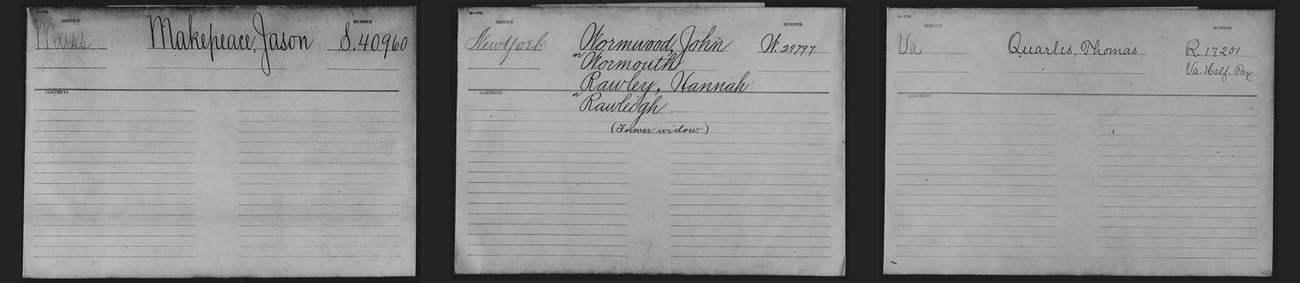 SERVICE
NUMBER
Mass
Makepeace, Jason
S. 40960
CONTENTS
SERVICE
NUMBER
New York
Wormwood, John
W. 24747
or Wormouth
Rawley, Hannah
CONTENTS
or Rawleigh
(Former widow.)
SERVICE
NUMBER
Va
Quarles, Thomas
R. 17251
Va. Half Pay
CONTENTS